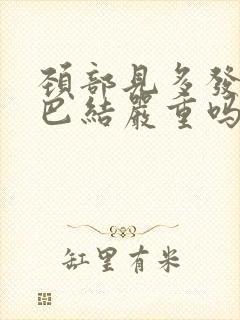 頚部見多發
巴結嚴重吗
缸里有米